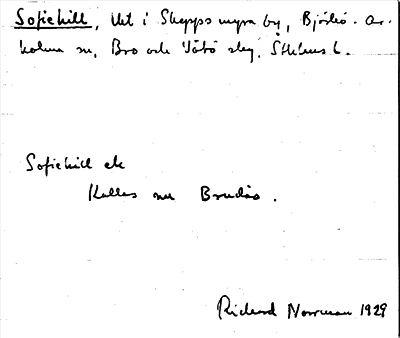 Sofiehill, lht i Skeppsmyra by, Björkö-Ar-
holma sn, Bro och Vätö skg, Sthlms l.
Sofiehill etc
Kallas nu Brudås.
Rickard Norrman 1929